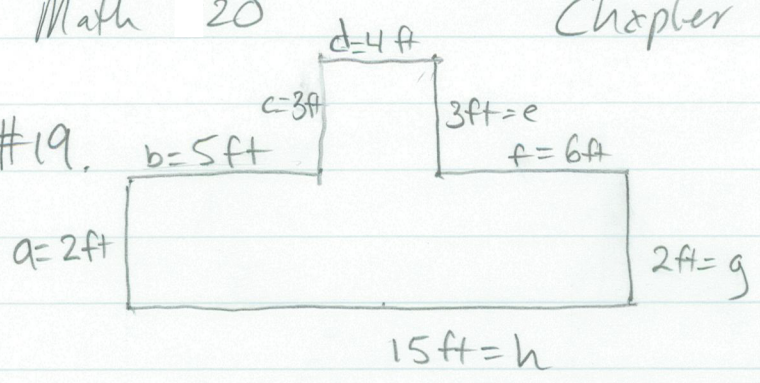 Math 20 Chapter
d=4 ft
c=3ft 3ft=e
#19. b=5ft f=6ft
a=2ft 2ft=g
15ft=h